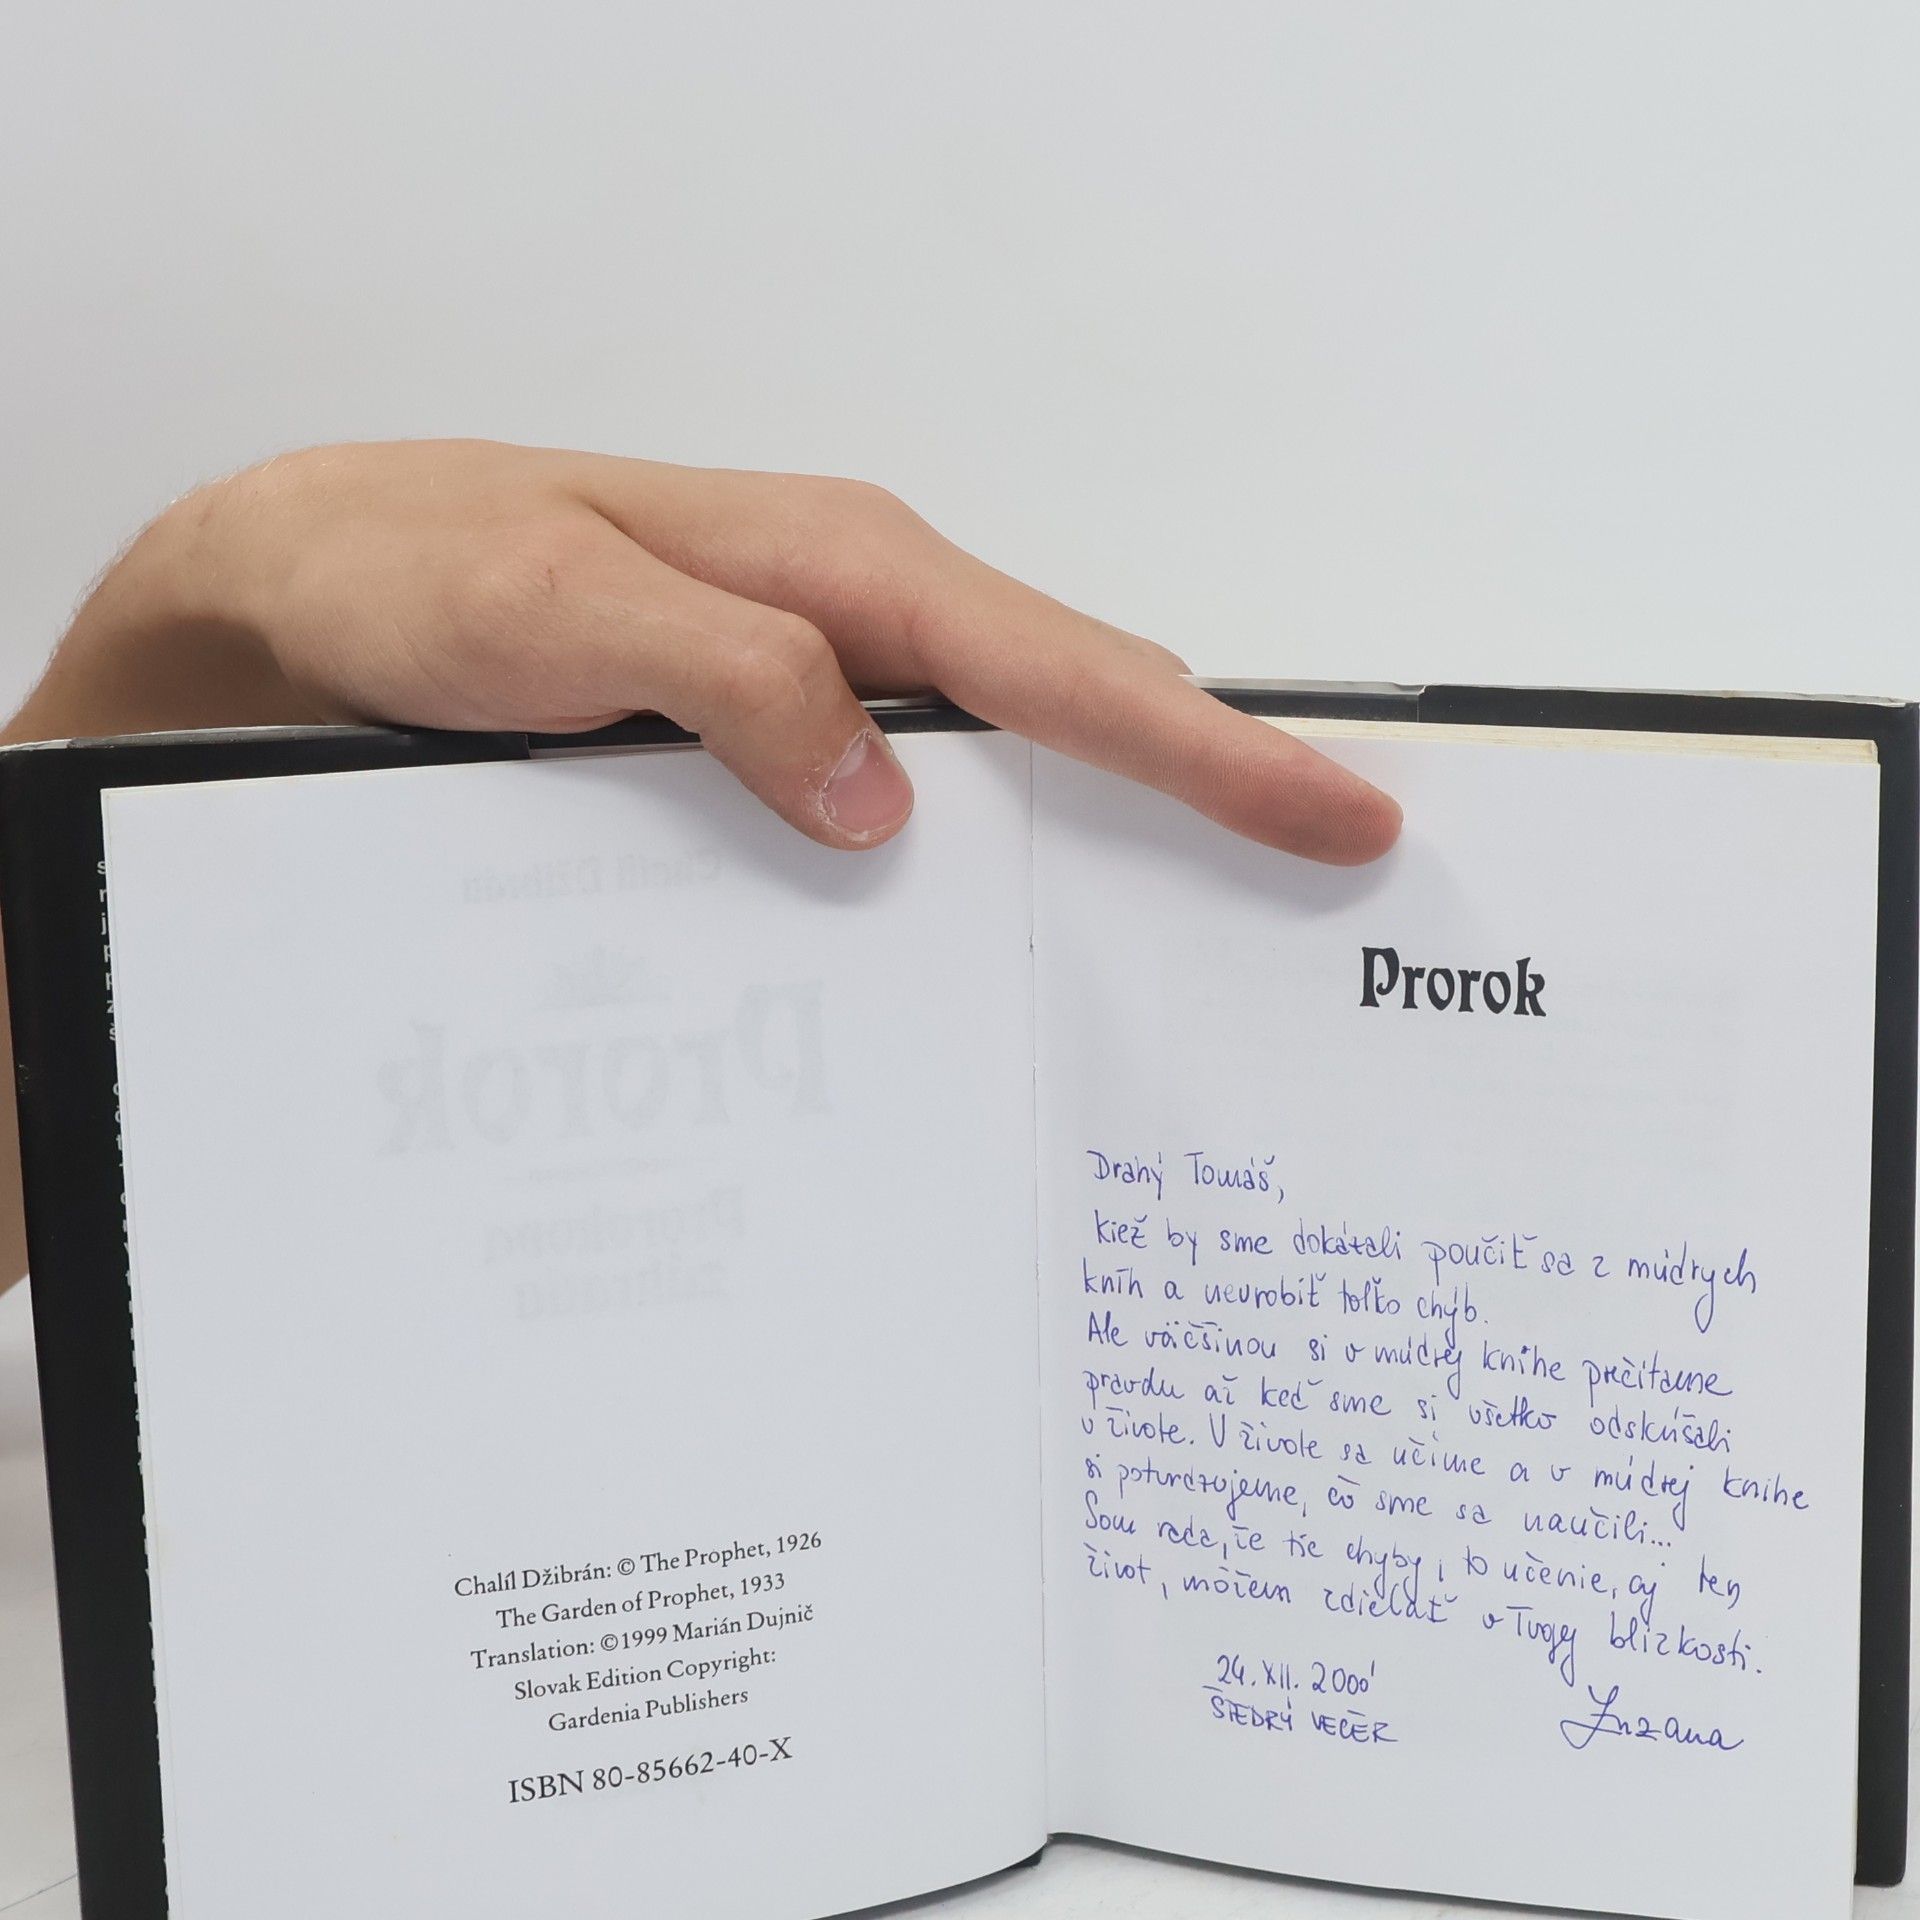 Chalíl Džibrán: © The Prophet, 1926
The Garden of Prophet, 1933
Translation: ©1999 Marián Dujnič
Slovak Edition Copyright:
Gardenia Publishers
ISBN 80-85662-40-X
Prorok
Drahý Tomáš,
kiež by sme dokázali poučiť sa z múdrych
kníh a neurobiť toľko chýb.
Ale väčšinou si v múdrej knihe prečítame
pravdu až keď sme si všetko odskúšali
v živote. V živote sa učíme a v múdrej knihe
si potvrdzujeme, čo sme sa naučili...
Som rada, že tie chyby, to učenie, aj ten
život, môžem zdieľať v Tvojej blízkosti.
24. XII. 2000
ŠTEDRÝ VEČER
Zuzana